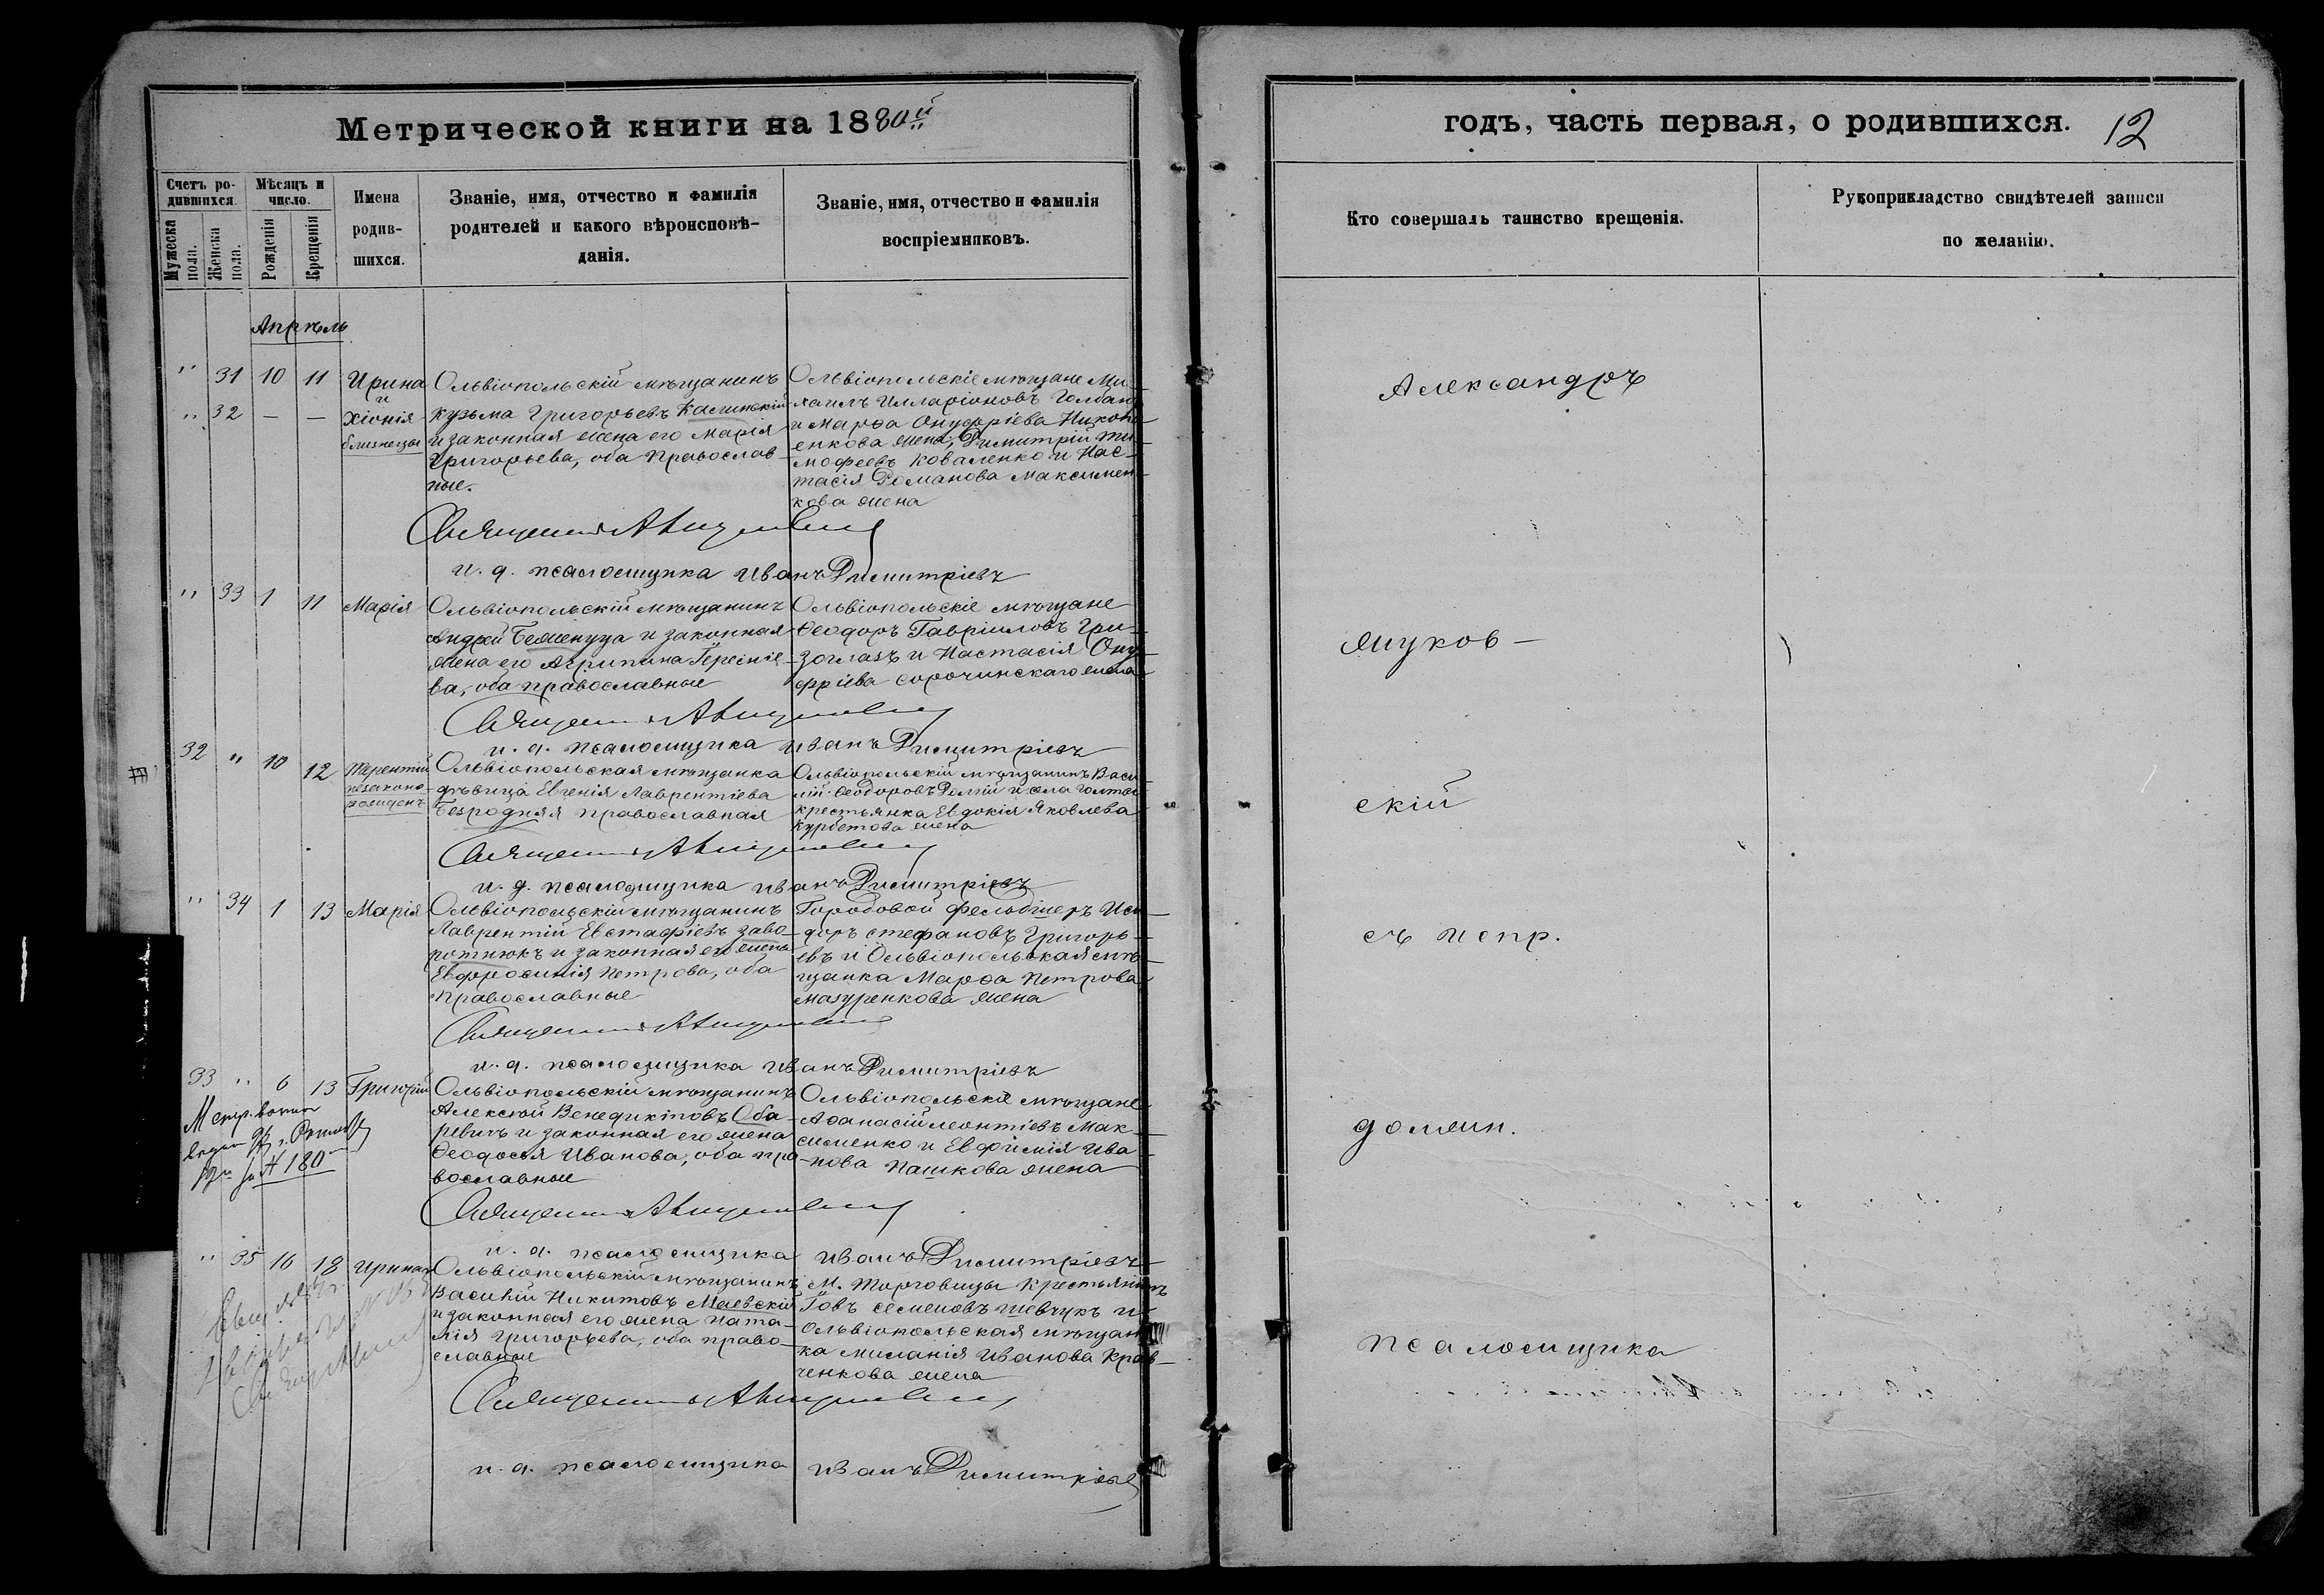 Метрической книги на 1880й
Счетъ ро-
дившихся.
Мужеска пола.
Женска пола.
Мѣсяцъ и
число.
Рожденія
Крещенія
Имена
родив-
шихся.
Званіе, имя, отчество и фамилія
родителей и какого вѣроисповѣ-
данія.
Званіе, имя, отчество и фамилія
воспріемниковъ.
Апрѣль
" 31 10 11 Ирина
и
" 32 — — Хіонія
близнецы
Ольвіопольскій мѣщанинъ
Кузьма Григорьевъ Калинскій
и законная жена его Марія
Григорьева, оба православ-
ные.
Ольвіопольскіе мѣщане Ми-
хаилъ Илларіоновъ Голбанъ
и Марѳа Онуфріева Никон
енкова жена, Димитрій Ти-
мофеевъ Коваленко и Нас-
тасія Романова Максимен-
кова жена
Священникъ
и. д. псаломщика Иванъ Димитріевъ
" 33 1 11 Марія
Ольвіопольскій мѣщанинъ
Андрей Беженуца и законная
жена его Агрипина Терентіе-
ва, оба православные
Ольвіопольскіе мѣщане
Ѳеодоръ Гавріиловъ Гри-
зоглазъ и Настасія Ону-
фріева Сорочинскаго жена
Священникъ
и. д. псаломщика Иванъ Димитріевъ
32 " 10 12 Терентій
незаконо-
рожденъ
Ольвіопольская мѣщанка
дѣвица Евгенія Лаврентіева
Безродняя православная
Ольвіопольскій мѣщанинъ Васи-
лій Ѳеодоровъ и села Голты
крестьянка Евдокія Яковлева
Курбетова жена
Священникъ
и. д. псаломщика Иванъ Димитріевъ
" 34 1 13 Марія
Ольвіопольскій мѣщанинъ
Лаврентій Евстафіевъ Заво-
ротнюкъ и законная его жена
Евфросинія Петрова, оба
православные
Городовой фельдшеръ Иси-
доръ Стефановъ Григорь-
евъ и Ольвіопольская мѣ-
щанка Марѳа Петрова
Мазуренкова жена
Священникъ
и. д. псаломщика Иванъ Димитріевъ
33 " 6 13 Григорій
№ 180
Ольвіопольскій мѣщанинъ
Алексѣй Венедиктовъ Оба-
ревичъ и законная его жена
Ѳеодосія Иванова, оба пра-
вославные
Ольвіопольскіе мѣщане
Аѳанасій Леонтіевъ Мак-
сименко и Евфимія Ива-
нова Пашкова жена
Священникъ
и. д. псаломщика Иванъ Димитріевъ
" 35 16 18 Ирина
Ольвіопольскій мѣщанинъ
Василій Никитовъ Маевскій
и законная его жена Ната-
лія Григорьева, оба право-
славные
М. Торговицы крестьянинъ
Іовъ Семеновъ Шевчукъ и
Ольвіопольская мѣщан-
ка Миланія Иванова Крав-
ченкова жена
Священникъ
и. д. псаломщика Иванъ Димитріевъ
годъ, часть первая, о родившихся. 12
Кто совершалъ таинство крещенія.
Рукоприкладство свидѣтелей записи
по желанію.
Александръ
скій
съ испр.
должн.
псаломщика